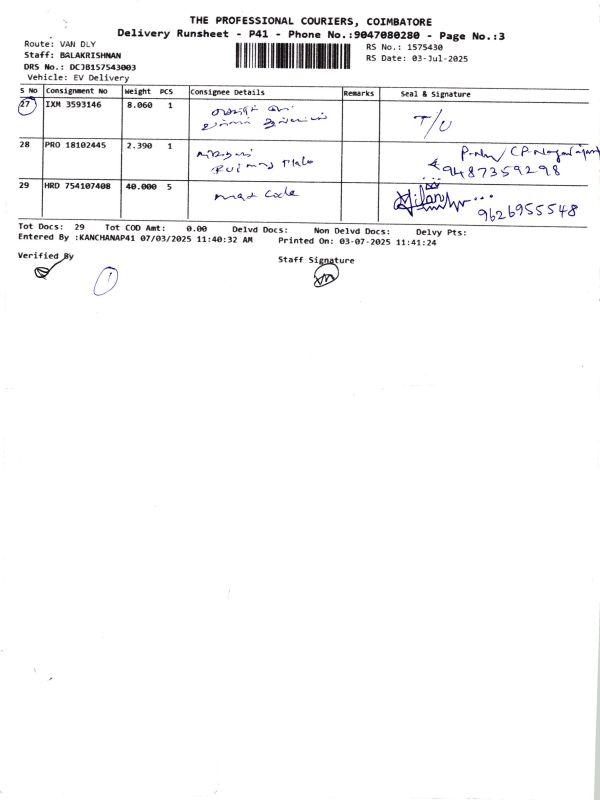 THE PROFESSIONAL COURIERS, COIMBATORE
Delivery Runsheet - P41 - Phone No.:9047080280 - Page No.:3
Route: VAN DLY
RS No.: 1575430
Staff: BALAKRISHNAN
RS Date: 03-Jul-2025
DRS No.: DCJB157543003
Vehicle: EV Delivery
S No Consignment No Weight PCS Consignee Details Remarks Seal & Signature
27 IXM 3593146 8.060 1 T/U
28 PRO 18102445 2.390 1
9487359298
29 HRD 754107408 40.000 5 max Code
9626955548
Tot Docs: 29 Tot COD Amt: 0.00 Delvd Docs: Non Delvd Docs: Delvy Pts:
Entered By :KANCHANAP41 07/03/2025 11:40:32 AM Printed On: 03-07-2025 11:41:24
Verified By
Staff Signature
1